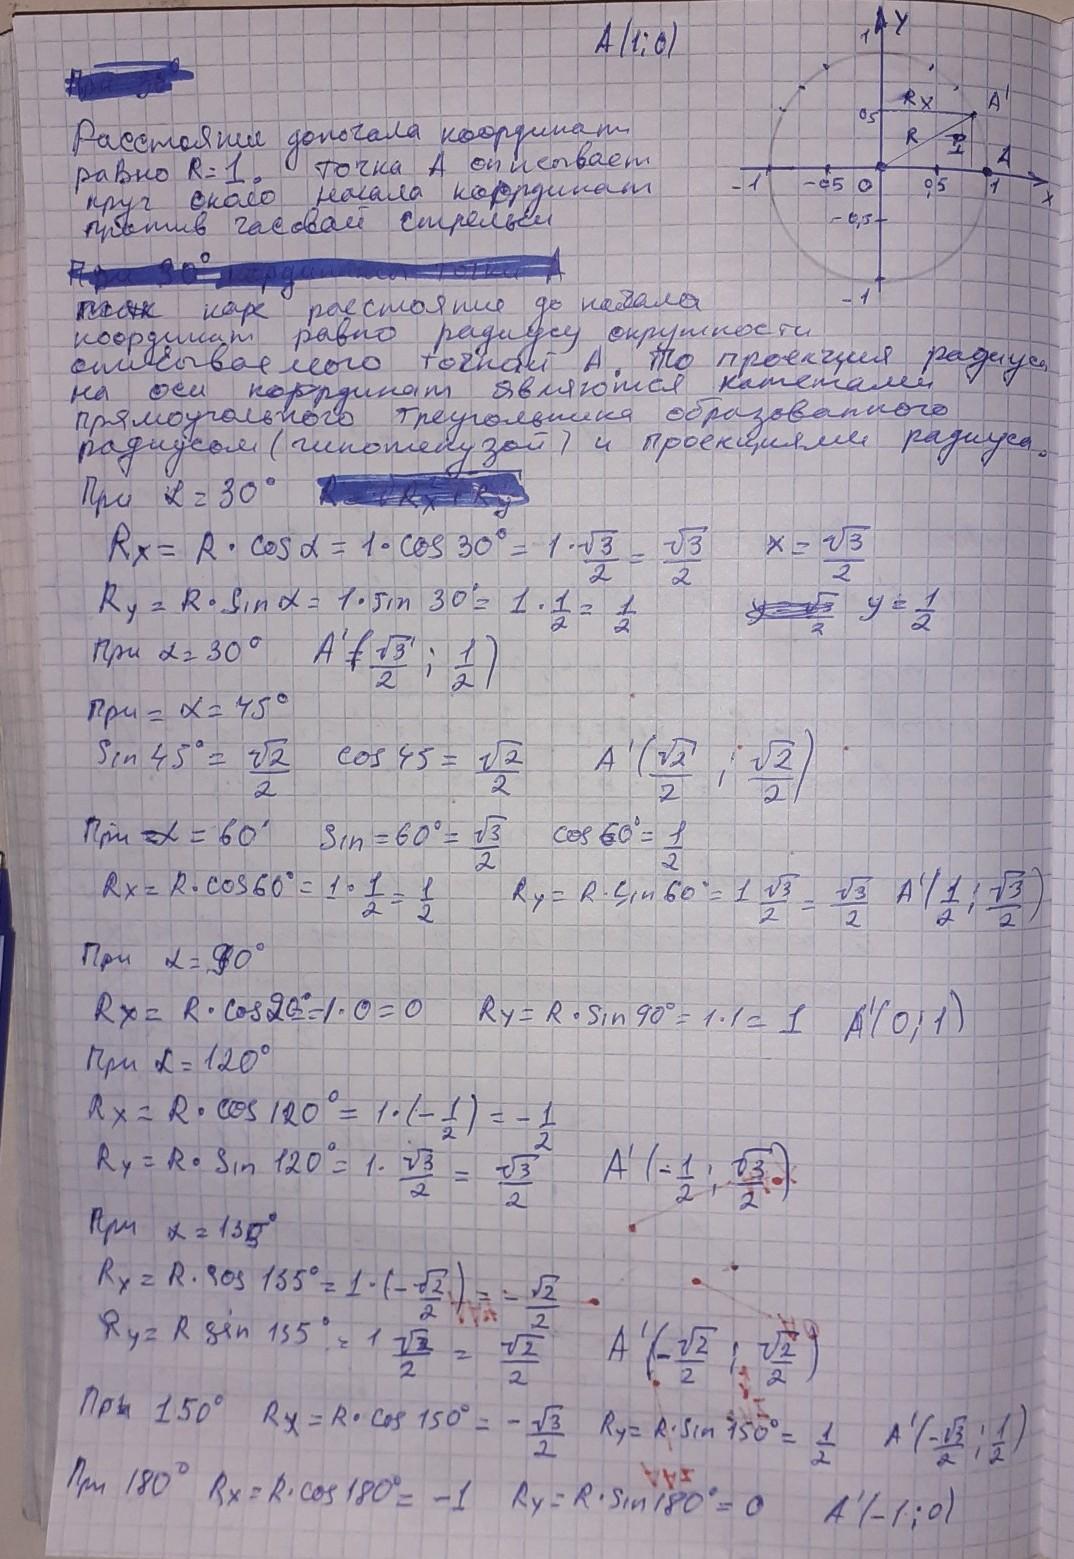 A(1;0)
Y
1
Rx
A'
0,5
R
A
-1
-0,5
0
0,5
1
X
-0,5
-1
Расстояние доночала координат
равно R=1. точка A описывает
круг около начала координат
против часовой стрельки
так как расстояние до начала
координат равно радиусу окружности
описываемого точкой A. То проекция радиуса
на оси координат являются катетами
прямоугольного треугольника образованного
радиусом (гипотенузой) и проекциями радиуса.
При α=30°
Rx = R·cosα = 1·cos30° = 1·√3/2 = √3/2   x = √3/2
Ry = R·Sinα = 1·sin 30° = 1·1/2 = 1/2   y = 1/2
При α=30°   A'(√3/2 ; 1/2)
При = α=45°
Sin 45° = √2/2   cos 45 = √2/2   A'(√2/2 ; √2/2)
При α = 60°   Sin = 60° = √3/2   cos60° = 1/2
Rx = R·cos60° = 1·1/2 = 1/2   Ry = R·Sin60° = 1 √3/2 = √3/2   A'(1/2 ; √3/2)
При α=90°
Rx = R·cos90° = 1·0 = 0   Ry = R·Sin90° = 1·1 = 1   A'(0;1)
При α=120°
Rx = R·cos120° = 1·(-1/2) = -1/2
Ry = R·Sin 120° = 1·√3/2 = √3/2   A'(-1/2 ; √3/2)
При α=135°
Rx = R·cos 135° = 1·(-√2/2) = -√2/2
Ry = R sin 135° = 1 √2/2 = √2/2   A'(-√2/2 ; √2/2)
При 150°   Rx = R·cos150° = -√3/2   Ry = R·Sin150° = 1/2   A'(-√3/2 ; 1/2)
При 180°   Rx = R·cos180° = -1   Ry = R·Sin180° = 0   A'(-1;0)